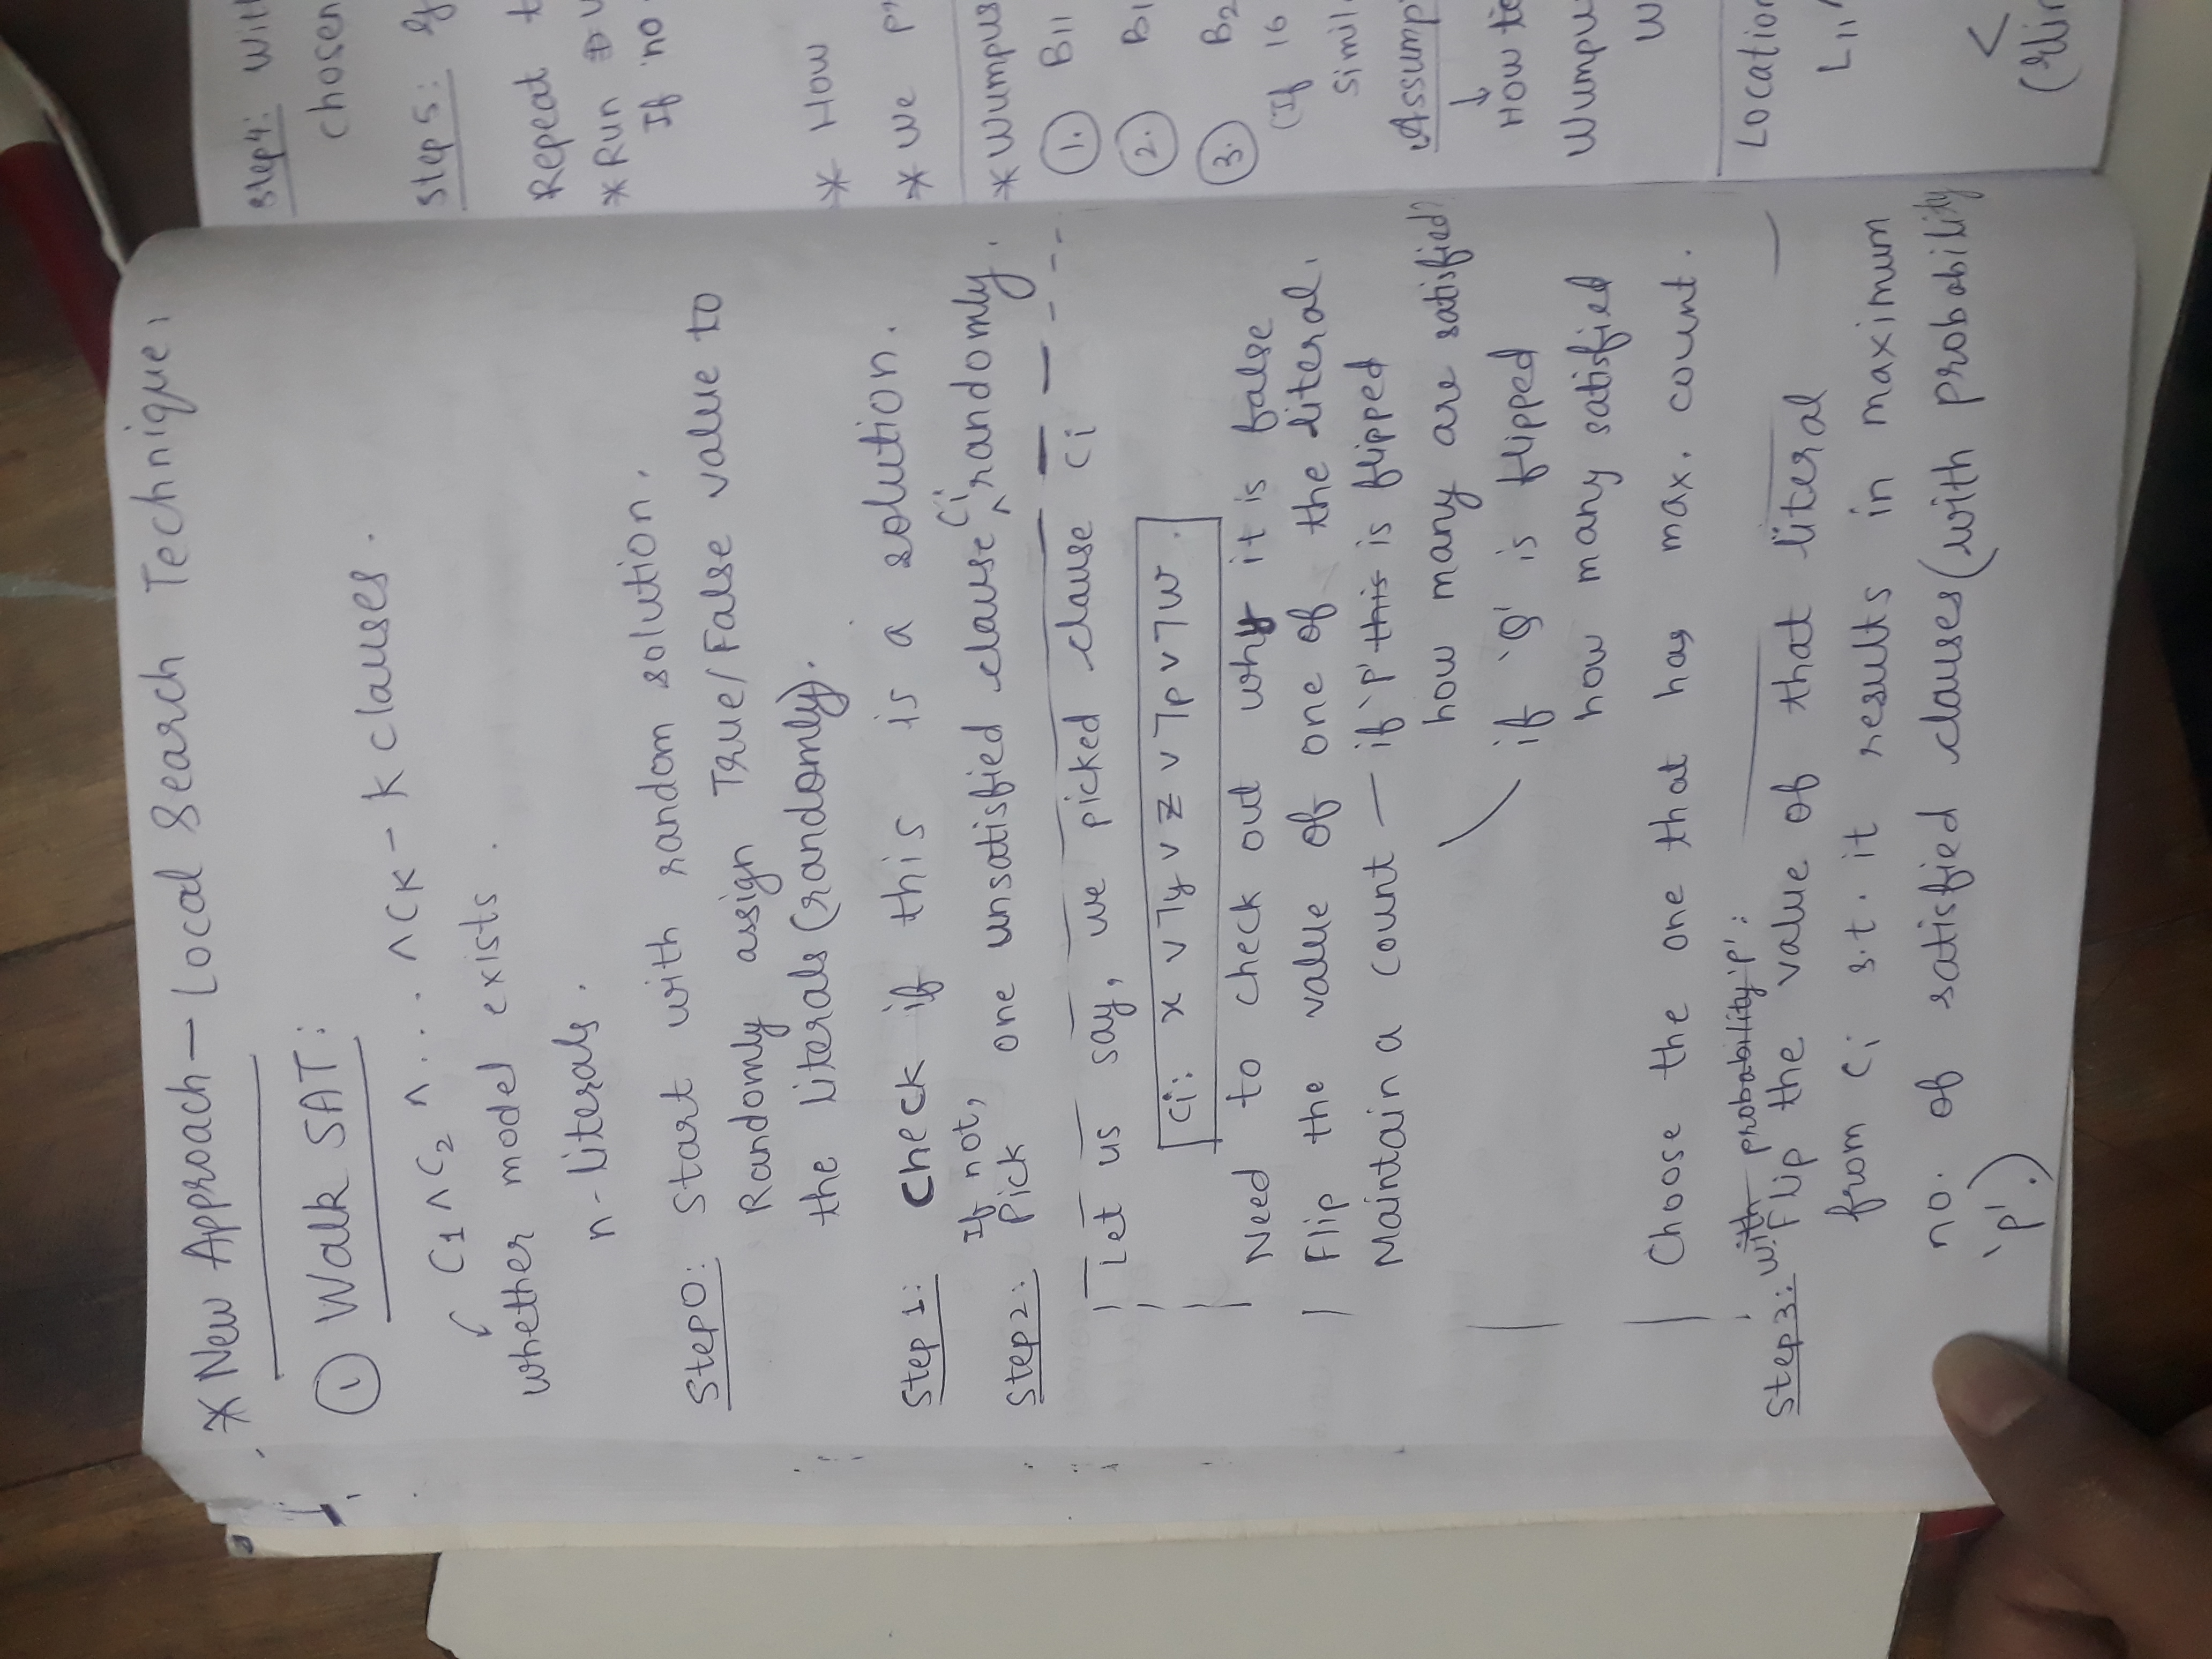 * New Approach - Local Search Technique:
① Walk SAT:
C1 ∧ C2 ∧ ... ∧ CK - K clauses.
whether model exists.
n - literals.
Step 0: Start with random solution.
Randomly assign True/False value to
the literals (randomly).
Step 1: Check if this is a solution.
If not,
Step 2: Pick one unsatisfied clause Ci randomly.
Let us say, we picked clause Ci
Ci: x ∨ ¬y ∨ z ∨ ¬p ∨ ¬w.
Need to check out why it is false
Flip the value of one of the literal.
Maintain a count - if 'p' this is flipped
how many are satisfied?
if 'Q' is flipped
how many satisfied
Choose the one that has max. count.
with probability 'p':
Step 3: Flip the value of that literal
from Ci s.t. it results in maximum
no. of satisfied clauses (with probability
'p'.)
Step 4: Wit
chosen
Step 5:
Repeat t
* Run
If no
* How
* We
* Wumpus
1. B11
2. B1
3. B2
(If 16
Simil
Assump
How to
Wumpu
W
Location
L11